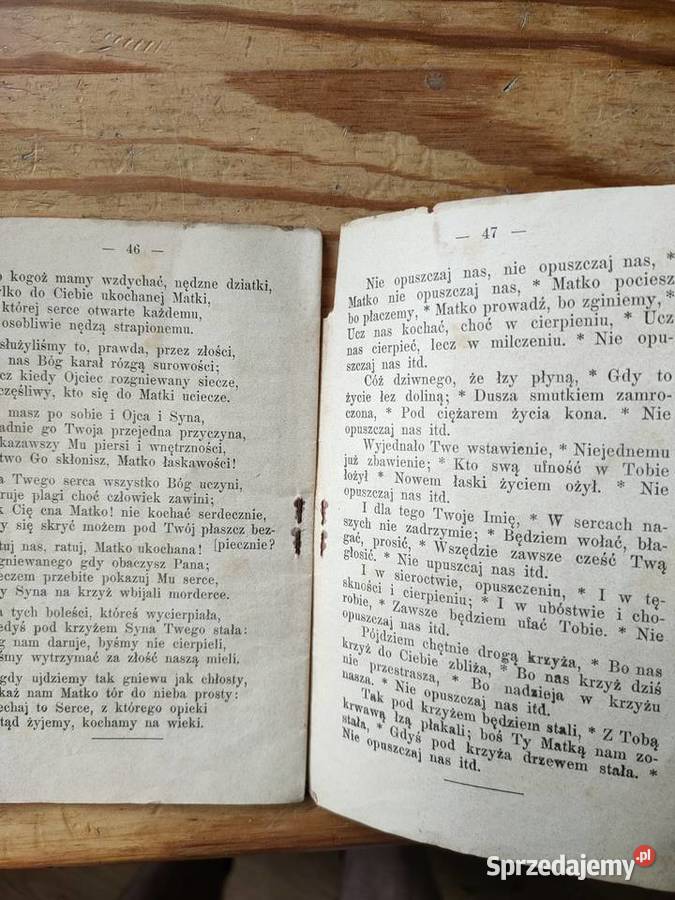 — 46 —
kogoż mamy wzdychać, nędzne dziatki,
ylko do Ciebie ukochanej Matki,
której serce otwarte każdemu,
osobliwie nędzą strapionemu.
służyliśmy to, prawda, przez złości,
nas Bóg karał rózgą surowości;
cz kiedy Ojciec rozgniewany siecze,
częśliwy, kto się do Matki uciecze.
masz po sobie i Ojca i Syna,
adnie go Twoja przejedna przyczyna,
kazawszy Mu piersi i wnętrzności,
two Go skłonisz, Matko łaskawości!
a Twego serca wszystko Bóg uczyni,
ruje plagi choć człowiek zawini;
k Cię cna Matko! nie kochać serdecznie,
y się skryć możem pod Twój płaszcz bez-
tuj nas, ratuj, Matko ukochana! [piecznie?
gniewanego gdy obaczysz Pana;
eczem przebite pokazuj Mu serce,
y Syna na krzyż wbijali morderce.
a tych boleści, któreś wycierpiała,
edyś pod krzyżem Syna Twego stała:
g nam daruje, byśmy nie cierpieli,
śmy wytrzymać za złość naszą mieli.
gdy ujdziemy tak gniewu jak chłosty,
każ nam Matko tór do nieba prosty:
echaj to Serce, z którego opieki
tąd żyjemy, kochamy na wieki.
— 47 —
Nie opuszczaj nas, nie opuszczaj nas, *
Matko nie opuszczaj nas, * Matko pociesz
bo płaczemy, * Matko prowadź, bo zginiemy, *
Ucz nas kochać, choć w cierpieniu, * Ucz
nas cierpieć, lecz w milczeniu. * Nie opu-
szczaj nas itd.
Cóż dziwnego, że łzy płyną, * Gdy to
życie łez doliną; * Dusza smutkiem zamro-
czona, * Pod ciężarem życia kona. * Nie
opuszczaj nas itd.
Wyjednało Twe wstawienie, * Niejednemu
już zbawienie; * Kto swą ufność w Tobie
łożył * Nowem łaski życiem ożył. * Nie
opuszczaj nas itd.
I dla tego Twoje Imię, * W sercach na-
szych nie zadrzymie; * Będziem wołać, bła-
gać, prosić, * Wszędzie zawsze cześć Twą
głosić. * Nie upuszcaj nas itd.
I w sieroctwie, opuszczeniu, * I w tę-
skności i cierpieniu; * I w ubóstwie i cho-
robie, * Zawsze będziem ufać Tobie. * Nie
opuszczaj nas itd.
Pójdziem chętnie drogą krzyża, * Bo nas
krzyż do Ciebie zbliża, * Bo nas krzyż dziś
nie przestrasza, * Bo nadzieja w krzyżu
nasza. * Nie opuszczaj nas itd.
Tak pod krzyżem będziem stali, * Z Tobą
krwawą łzą płakali; boś Ty Matką nam zo-
stała, * Gdyś pod krzyża drzewem stała. *
Nie opuszczaj nas itd.
Sprzedajemy.pl